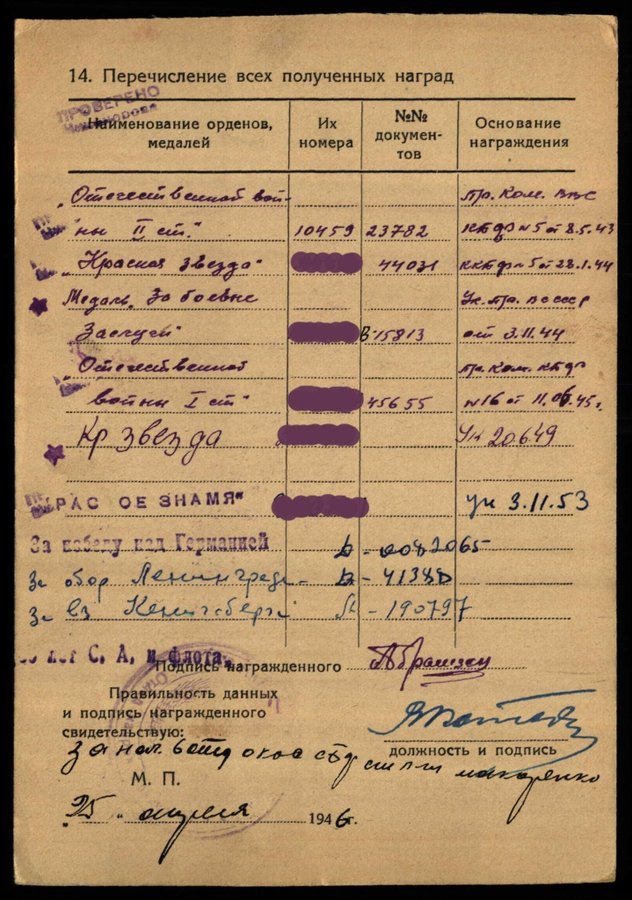 14. Перечисление всех полученных наград
ПРОВЕРЕНО
Наименование орденов, медалей
Их номера
№№ документов
Основание награждения
„Отечественной вой-
Пр. Ком. ВВС
ны II ст." 10459 23782 КБФ №5 от 8.5.43
„Красная звезда" 44031 ККБФ №5 от 28.1.44
Медаль „За боевые Ук. пр. ВС СССР
Заслуги" В-15813 от 3.11.44
„Отечественной Пр. Ком. КБФ
войны I ст" 45655 №16 от 11.06.45г
Кр звезда Ук 20.6.49
РАС ОЕ ЗНАМЯ" ук 3.11.53
За победу над Германией 0082065
За обор Ленинграда - 41388
За вз Кенигсберга Л - 190797
лет С. А. и флота
Подпись награжденного
Правильность данных
и подпись награжденного
свидетельствую:
должность и подпись
макаренко
М. П.
„25 „ апреля 1946г.